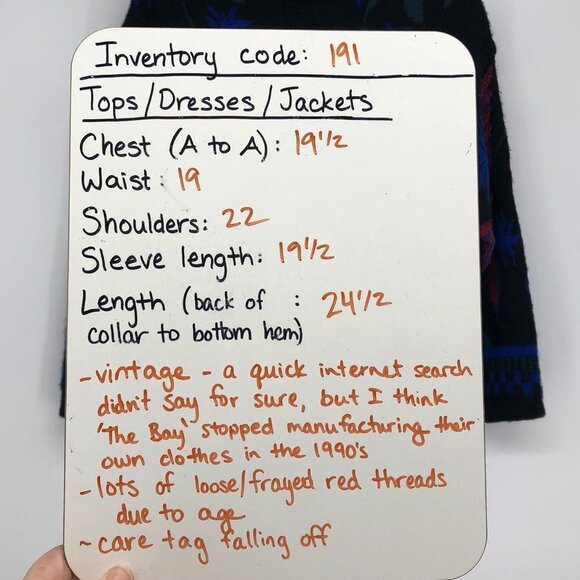 Inventory code: 191
Tops/Dresses/Jackets
Chest (A to A): 19 1/2
Waist: 19
Shoulders: 22
Sleeve length: 19 1/2
Length (back of : 24 1/2
collar to bottom hem)
- vintage - a quick internet search
didn't say for sure, but I think
'The Bay' stopped manufacturing their
own clothes in the 1990's
- lots of loose/frayed red threads
due to age
~ care tag falling off